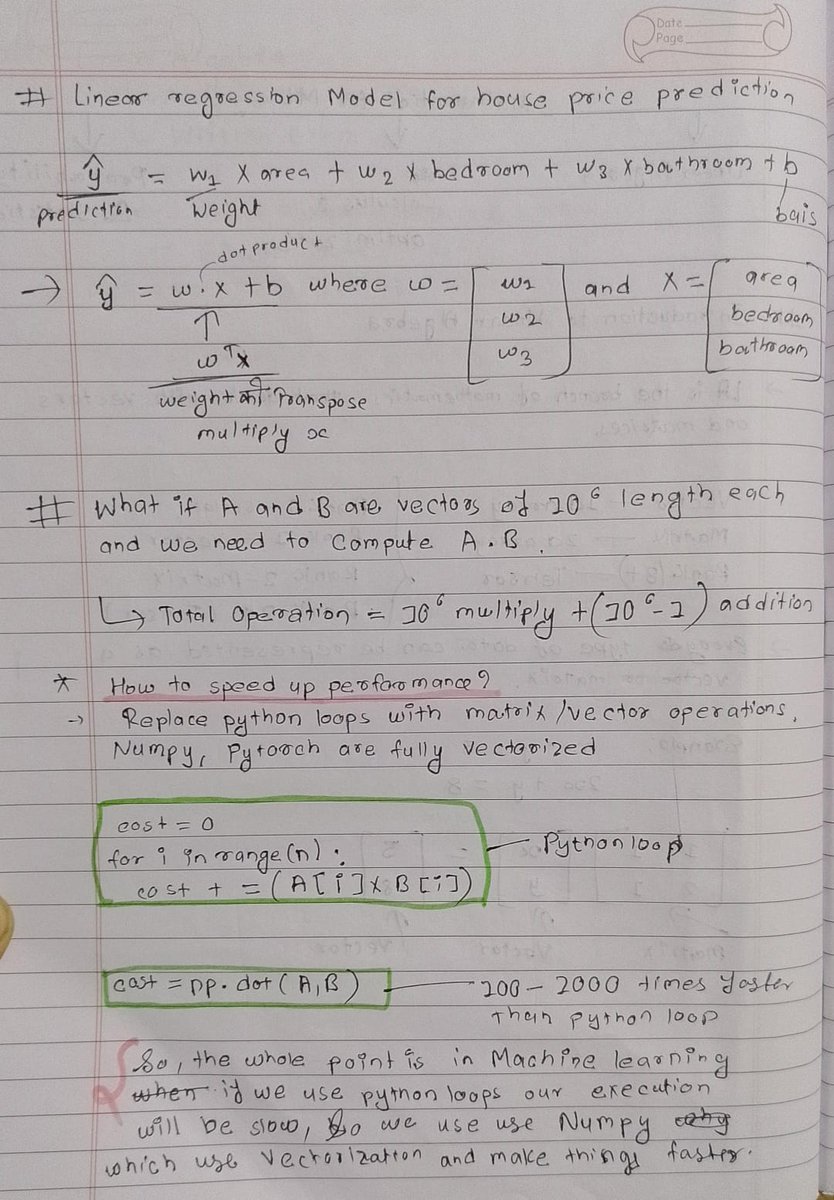 Date
Page
# Linear regression Model for house price prediction
ŷ = w1 x area + w2 x bedroom + w3 x bathroom + b
prediction weight bais
dot product
→ ŷ = w . x + b where w = [w1 and x = [area
w2 bedroom
w3] bathroom]
↑
wᵀx
weight की Transpose
multiply x
# What if A and B are vectors of 10⁶ length each
and we need to compute A . B .
↳ Total Operation = 10⁶ multiply + (10⁶ - 1) addition
* How to speed up performance?
→ Replace python loops with matrix / vector operations.
Numpy, Pytorch are fully vectorized
cost = 0
for i in range(n) :
cost + = (A[i] x B[i])
Python loop
cost = np . dot (A, B)
200 - 2000 times faster
than python loop
So, the whole point is in Machine learning
when if we use python loops our execution
will be slow, So we use use Numpy
which use Vectorization and make things faster.